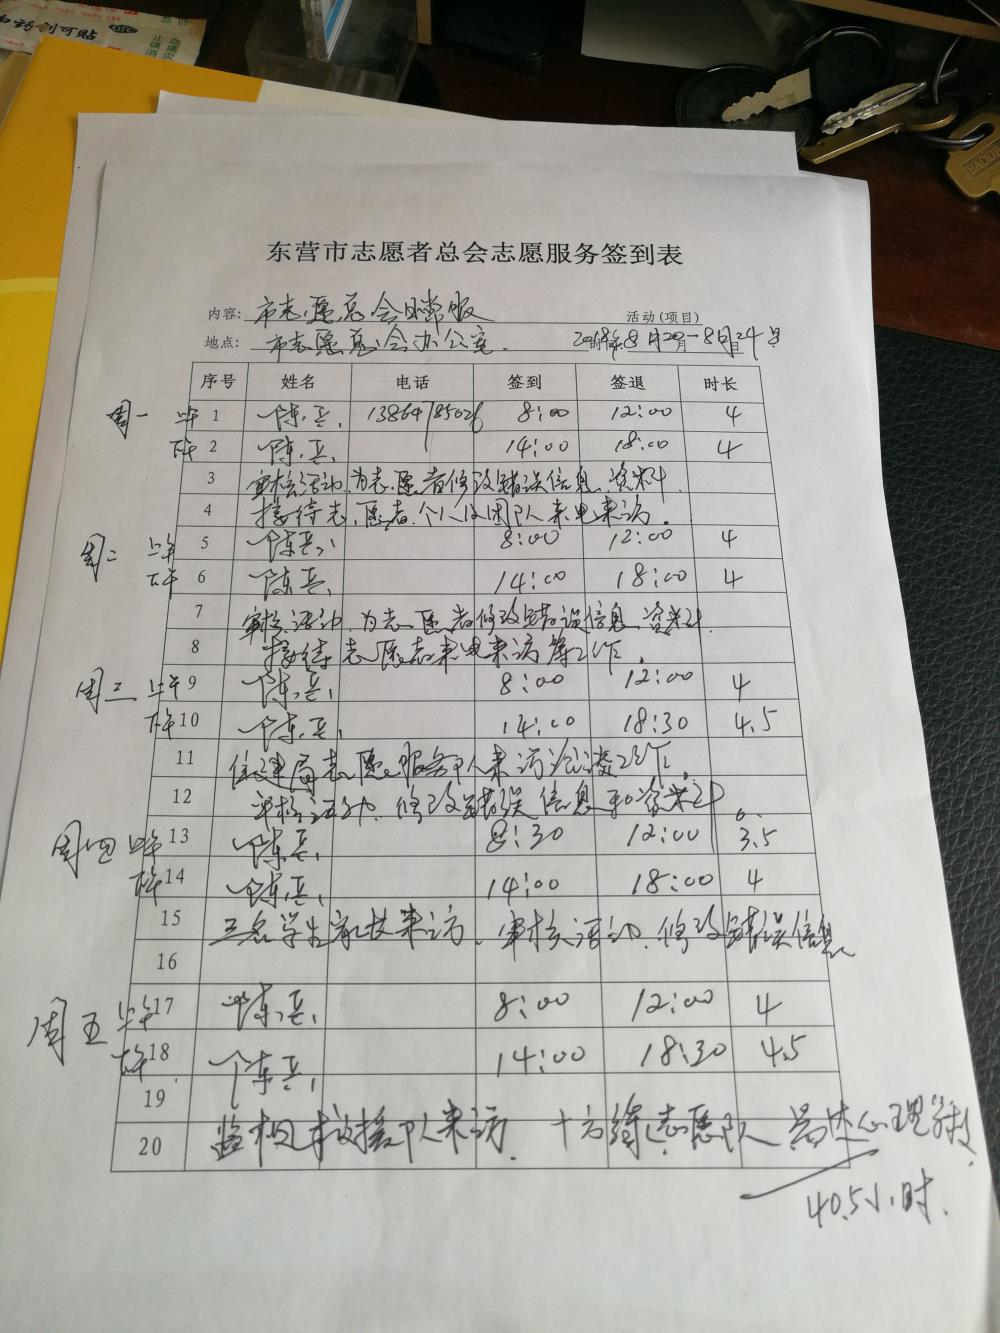 东营市志愿者总会志愿服务签到表
内容: 市志愿总会日常服 活动(项目)
地点: 市志愿总会办公室. 2018年8月20日-8月24日
序号 姓名 电话 签到 签退 时长
周一 上午 1 陈兵 8:00 12:00 4
下午 2 陈兵 14:00 18:00 4
3 审核活动、为志愿者修改错误信息、资料
4 接待志愿者、个人及团队来电来访。
周二 上午 5 陈兵 8:00 12:00 4
下午 6 陈兵 14:00 18:00 4
7 审核活动、为志愿者修改错误信息、资料
8 接待志愿者来电来访等工作。
周三 上午 9 陈兵 8:00 12:00 4
下午 10 陈兵 14:00 18:30 4.5
11 住建局志愿服务队来访洽谈工作。
12 审核活动、修改错误信息和资料。
周四 上午 13 陈兵 8:30 12:00 3.5
下午 14 陈兵 14:00 18:00 4
15 三名学生家长来访、审核活动、修改错误信息
16
周五 上午 17 陈兵 8:00 12:00 4
下午 18 陈兵 14:00 18:30 4.5
19
20 救援队来访. 十方缘志愿队 心理
40.5小时.